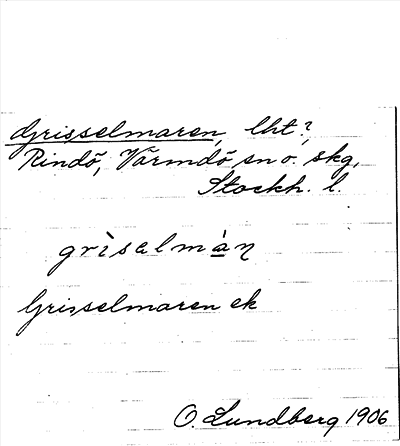 Grisselmaren, lht?,
Rindö, Värmdö sn o. skg,
Stockh. l.
grìsəlmàn
Grisselmaren ek
O. Lundberg 1906